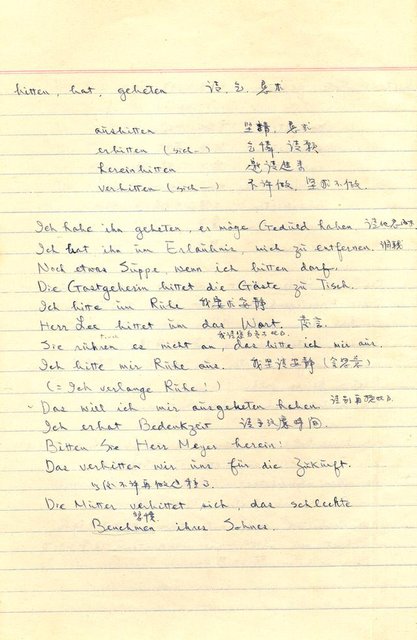 bitten, bat, gebeten 请. 乞. 要求
ausbitten 坚请. 要求
erbitten (sich—) 乞怜, 请求
hereinbitten 邀请进去
verbitten (sich—) 不许做, 坚求不做.
Ich habe ihn gebeten, er möge Geduld haben.
Ich bat ihn um Erlaubnis, mich zu entfernen.
Noch etwas Suppe, wenn ich bitten darf.
Die Gastgeberin bittet die Gäste zu Tisch.
Ich bitte um Ruhe 我要求安静
Herr Lee bittet um das Wort. 发言.
Sie rühren es nicht an, das bitte ich mir aus.
Ich bitte mir Ruhe aus. 我坚请安静
(= Ich verlange Ruhe!)
Das will ich mir ausgebeten haben.
Ich erbat Bedenkzeit 时间.
Bitten Sie Herr Meyer herein!
Das verbitten wir uns für die Zukunft.
Die Mutter verbittet sich, das schlechte
Benehmen ihres Sohnes.